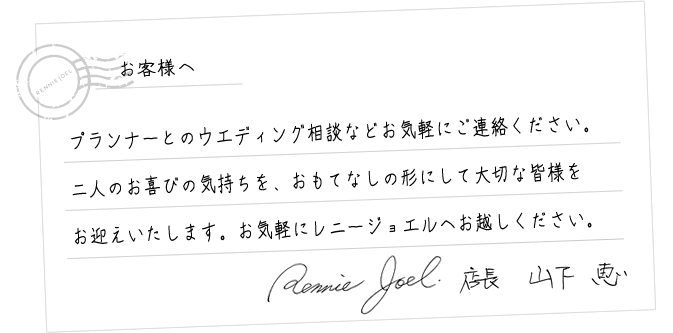 RENNIE JOEL
お客様へ
プランナーとのウエディング相談などお気軽にご連絡ください。
二人のお喜びの気持ちを、おもてなしの形にして大切な皆様を
お迎えいたします。お気軽にレニージョエルへお越しください。
Rennie Joel. 店長 山下 恵